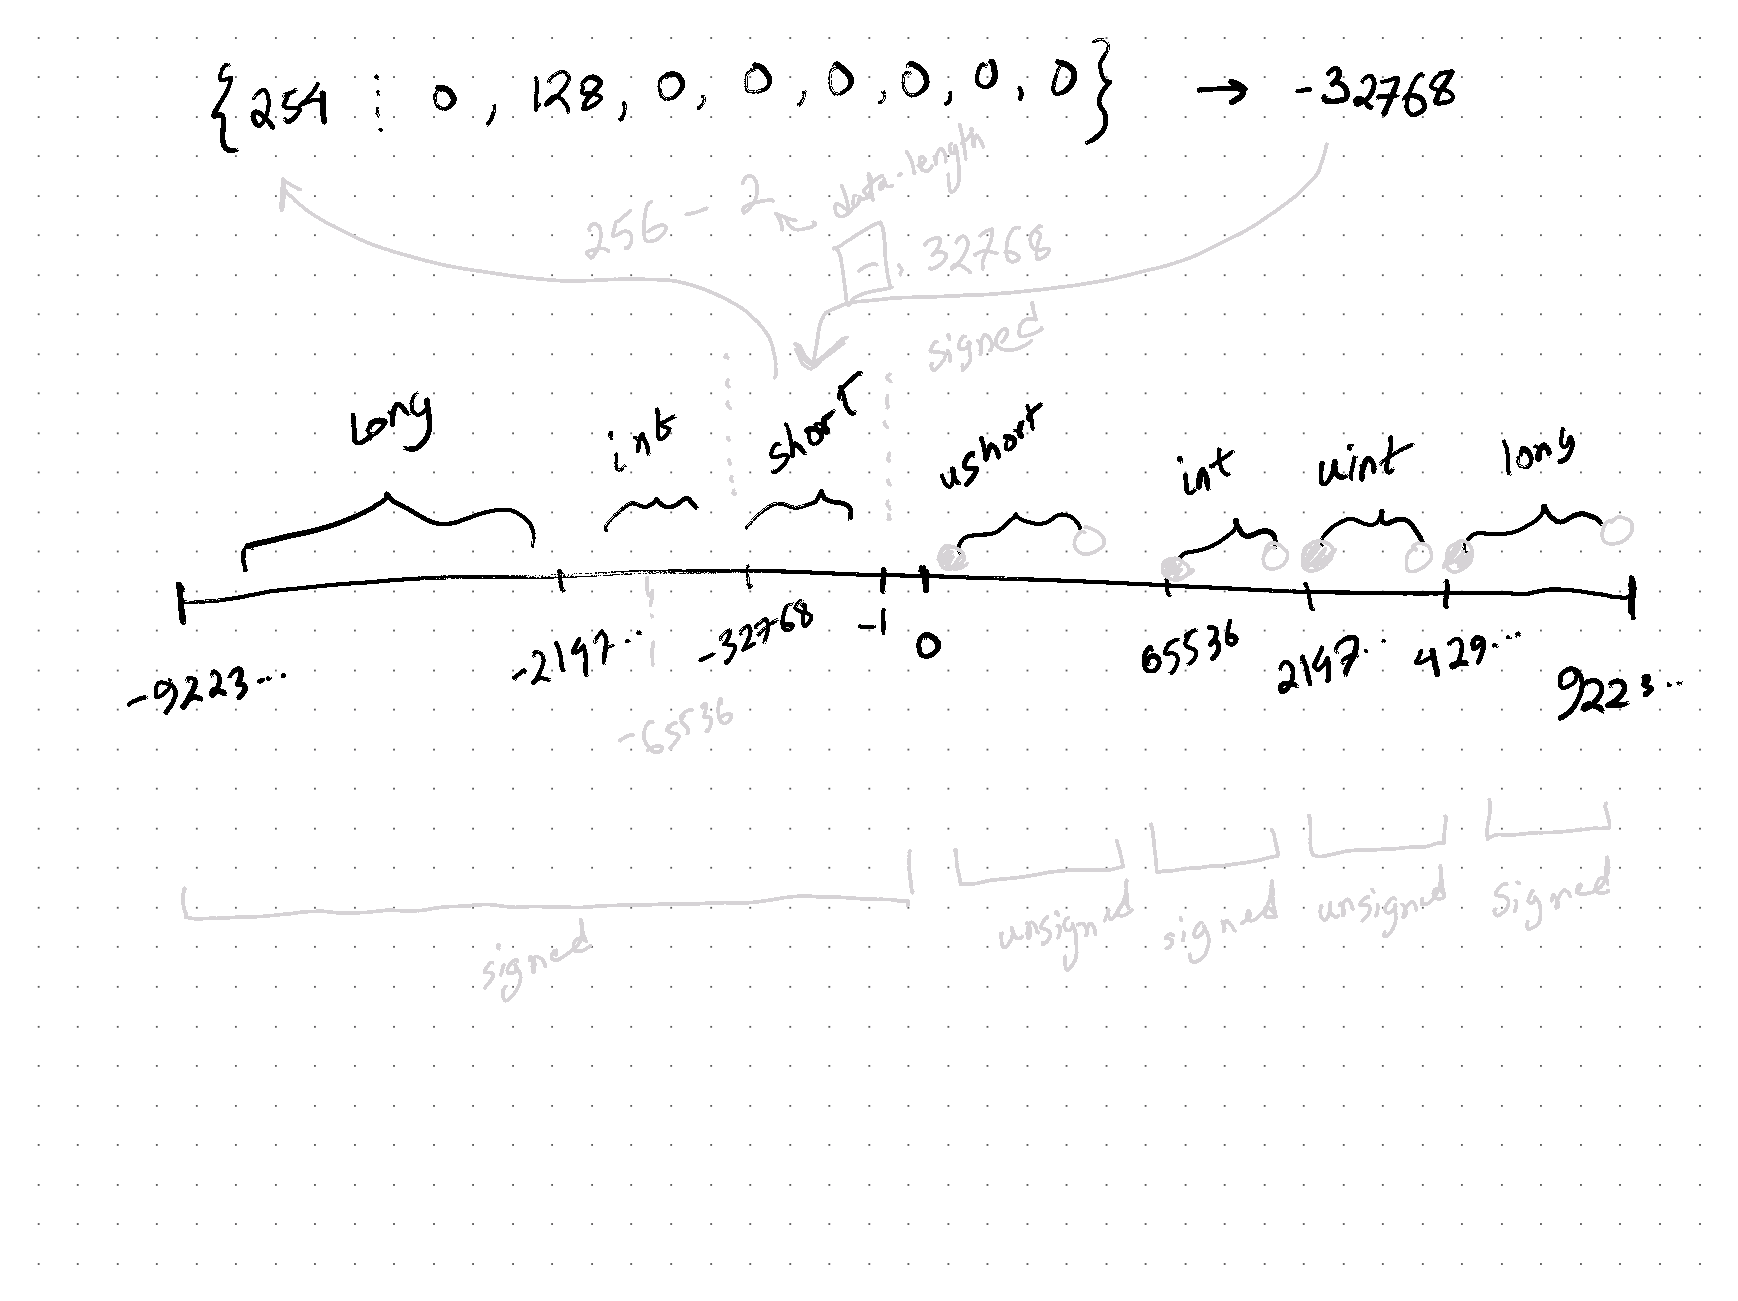 {254 ⋮ 0, 128, 0, 0, 0, 0, 0, 0} → -32768
256 - 2 data.length
-, 32768
signed
long int short ushort int uint long
-9223... -2147... -32768 -1 0 65536 2147.. 429... 9223..
-65536
signed unsigned signed unsigned signed